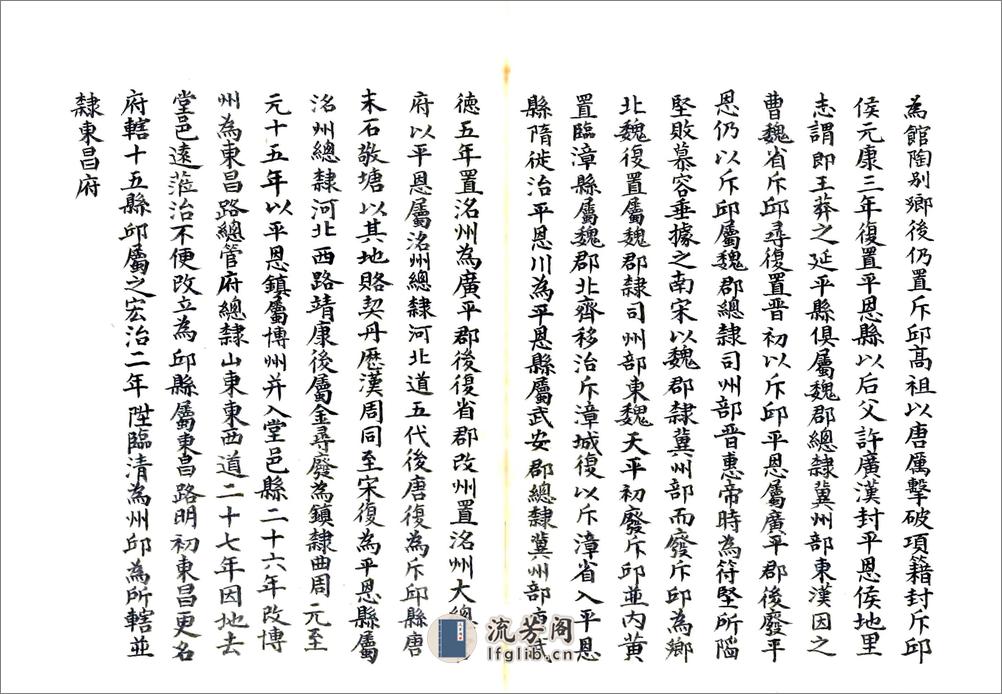 為館陶别鄉後仍置斥邱高祖以唐厲擊破項籍封斥邱
侯元康三年復置平恩縣以后父許廣漢封平恩侯地里
志謂即王莽之延平縣俱屬魏郡總隸冀州部東漢因之
曹魏省斥邱尋復置晉初以斥邱平恩屬廣平郡後廢平
恩仍以斥邱屬魏郡總隸司州部晉惠帝時為符堅所陷
堅敗慕容垂據之南宋以魏郡隸冀州部而廢斥邱為鄉
北魏復置屬魏郡隸司州部東魏天平初廢斥邱並内黃
置臨漳縣屬魏郡北齊移治斥漳城復以斥漳省入平恩
縣隋徙治平恩川為平恩縣屬武安郡總隸冀州部唐武
德五年置洺州為廣平郡後復省郡改州置洺州大總
府以平恩屬洺州總隸河北道五代後唐復為斥邱縣唐
末石敬塘以其地賂契丹歷漢周同至宋復為平恩縣屬
洺州總隸河北西路靖康後屬金尋廢為鎮隸曲周元至
元十五年以平恩鎮屬博州并入堂邑縣二十六年改博
州為東昌路總管府總隸山東東西道二十七年因地去
堂邑遠蒞治不便改立為邱縣屬東昌路明初東昌更名
府轄十五縣邱屬之宏治二年陞臨清為州邱為所轄並
隸東昌府
流芳阁
lfglib.cn